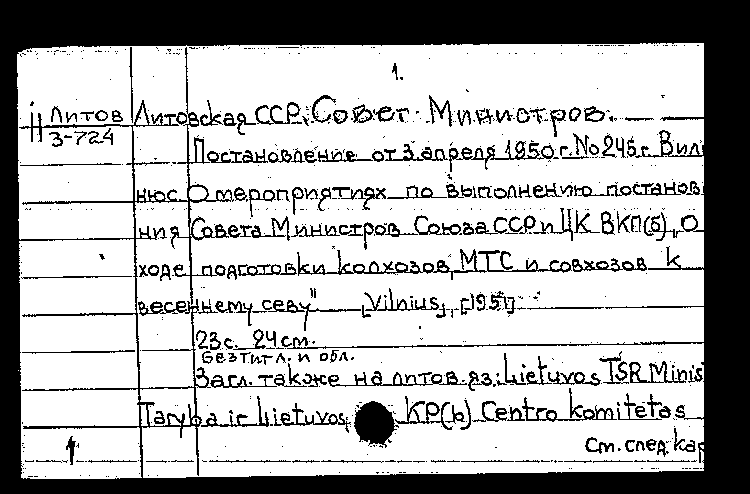 1.
Литов
3-724
Литовская ССР. Совет Министров. —
Постановление от 3 апреля 1950г. No 245г. Вил
нюс О мероприятиях по выполнению постанов
ния Совета Министров Союза ССР и ЦК ВКП(б) „О
ходе подготовки колхозов, МТС и совхозов к
весеннему севу" [Vilnius], [1951]
23с. 24см.
без титл. и обл.
Загл. также на литов. яз: Lietuvos TSR Minis
Taryba ir Lietuvos KP(b) Centro komitetas
См. след. кар